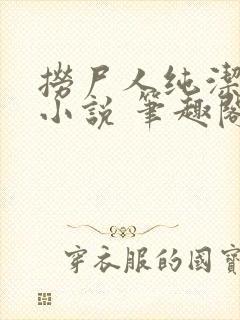 撈尸人纯潔
小説 筆趣閣
穿衣服的國寶